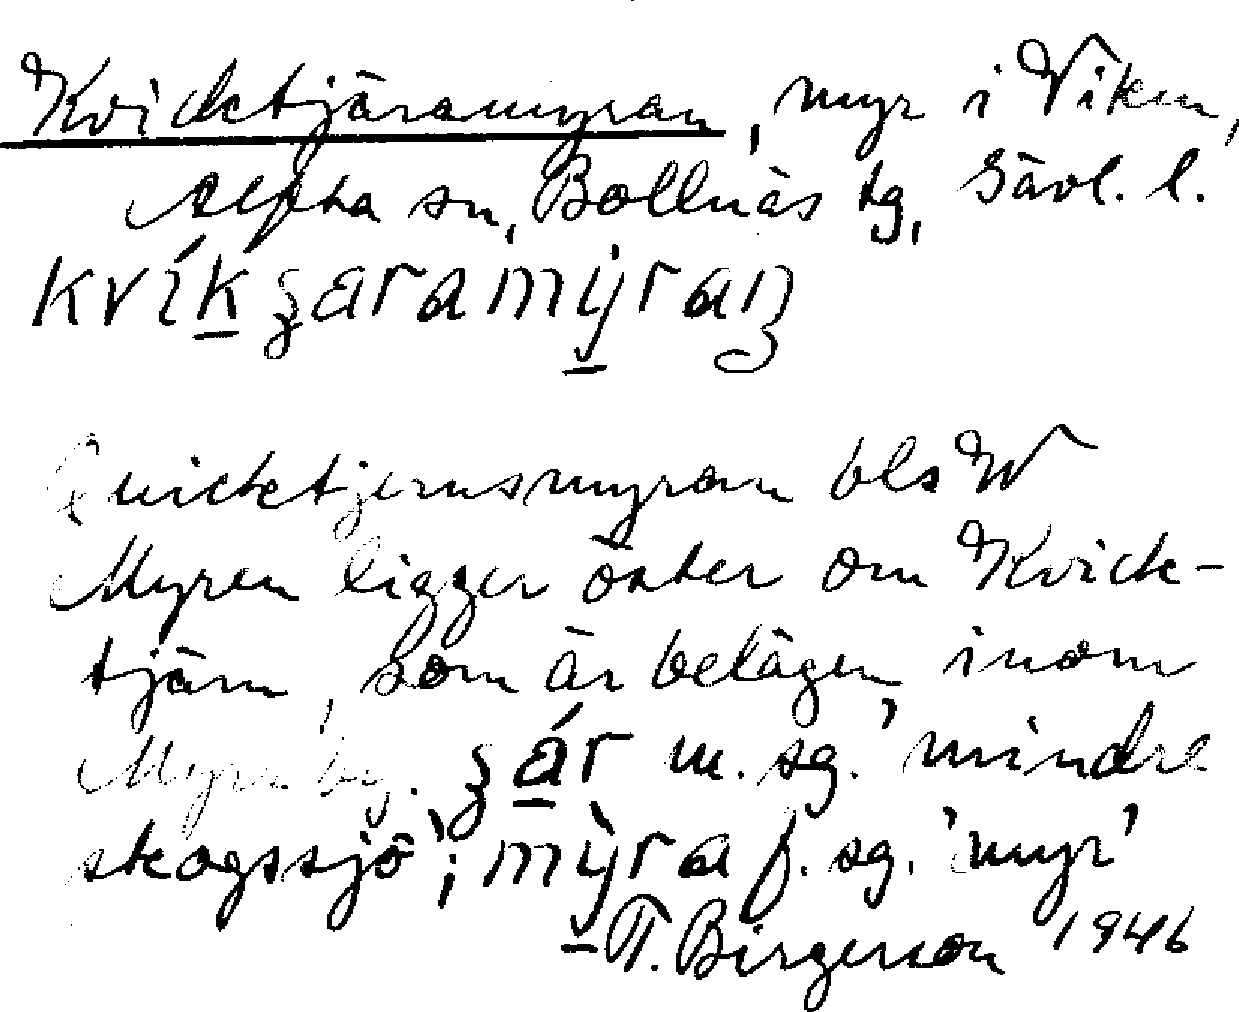 Kvicktjäramyran, myr i Viken,
Alfta sn, Bollnäs tg, Gävl. l.
kvík ʒaramỳraɲ
Quicktjernsmyran bls W
Myren ligger öster om Kvick-
tjärn, som är belägen inom
Myra by. ʒár m. sg. 'mindre
skogssjö'; mỳra f. sg. 'myr'
T. Birgerson 1946